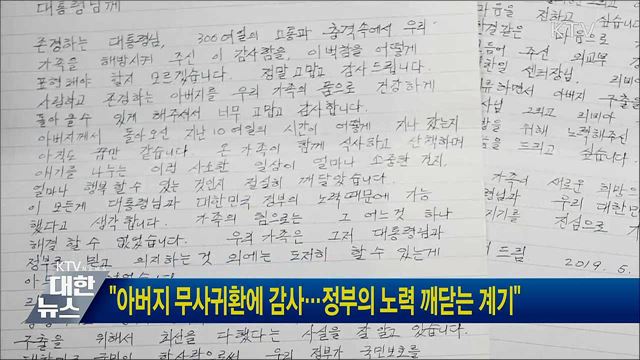 대통령님께
존경하는 대통령님, 300여일의 고통과 충격속에서 우리
가족을 해방시켜 주신 이 감사함을, 이 벅참을 어떻게
표현해야 할지 모르겠습니다. 정말 고맙고 감사드립니다.
사랑하고 존경하는 아버지를 우리 가족의 품으로 건강하게
돌아올 수 있게 해주셔서 너무 고맙고 감사합니다.
아버지께서 돌아오신 지난 10여일의 시간이 어떻게 지나갔는지
아직도 꿈만 같습니다. 온 가족이 함께 식사하고 산책하며
얘기를 나누는 이런 사소한 일상이 얼마나 소중한 건지,
얼마나 행복할 수 있는 것인지 절실히 깨달았습니다.
이 모든게 대통령님과 대한민국 정부의 노력 때문에 가능
했다고 생각합니다. 가족의 힘으로는 그 어느것 하나
해결 할 수 없었습니다. 우리 가족은 그저 대통령님과
정부를 믿고 의지하는 것 외에는 도저히 할 수 있는게
구출을 위해서 최선을 다했다는 사실을 잘 알고 있습니다.
우리 정부가 국민보호를
마음을 전하고 싶습니다
주신 외교부
센터장님, 리비
아버지 구출을
그리고 리비아
위해 노력해주신
드리고 싶습니다.
가족이 새로운 희망
우리 대한민
진심으로
드림
2019. 5.
KTV
KTV
대한
뉴스
"아버지 무사귀환에 감사…정부의 노력 깨닫는 계기"